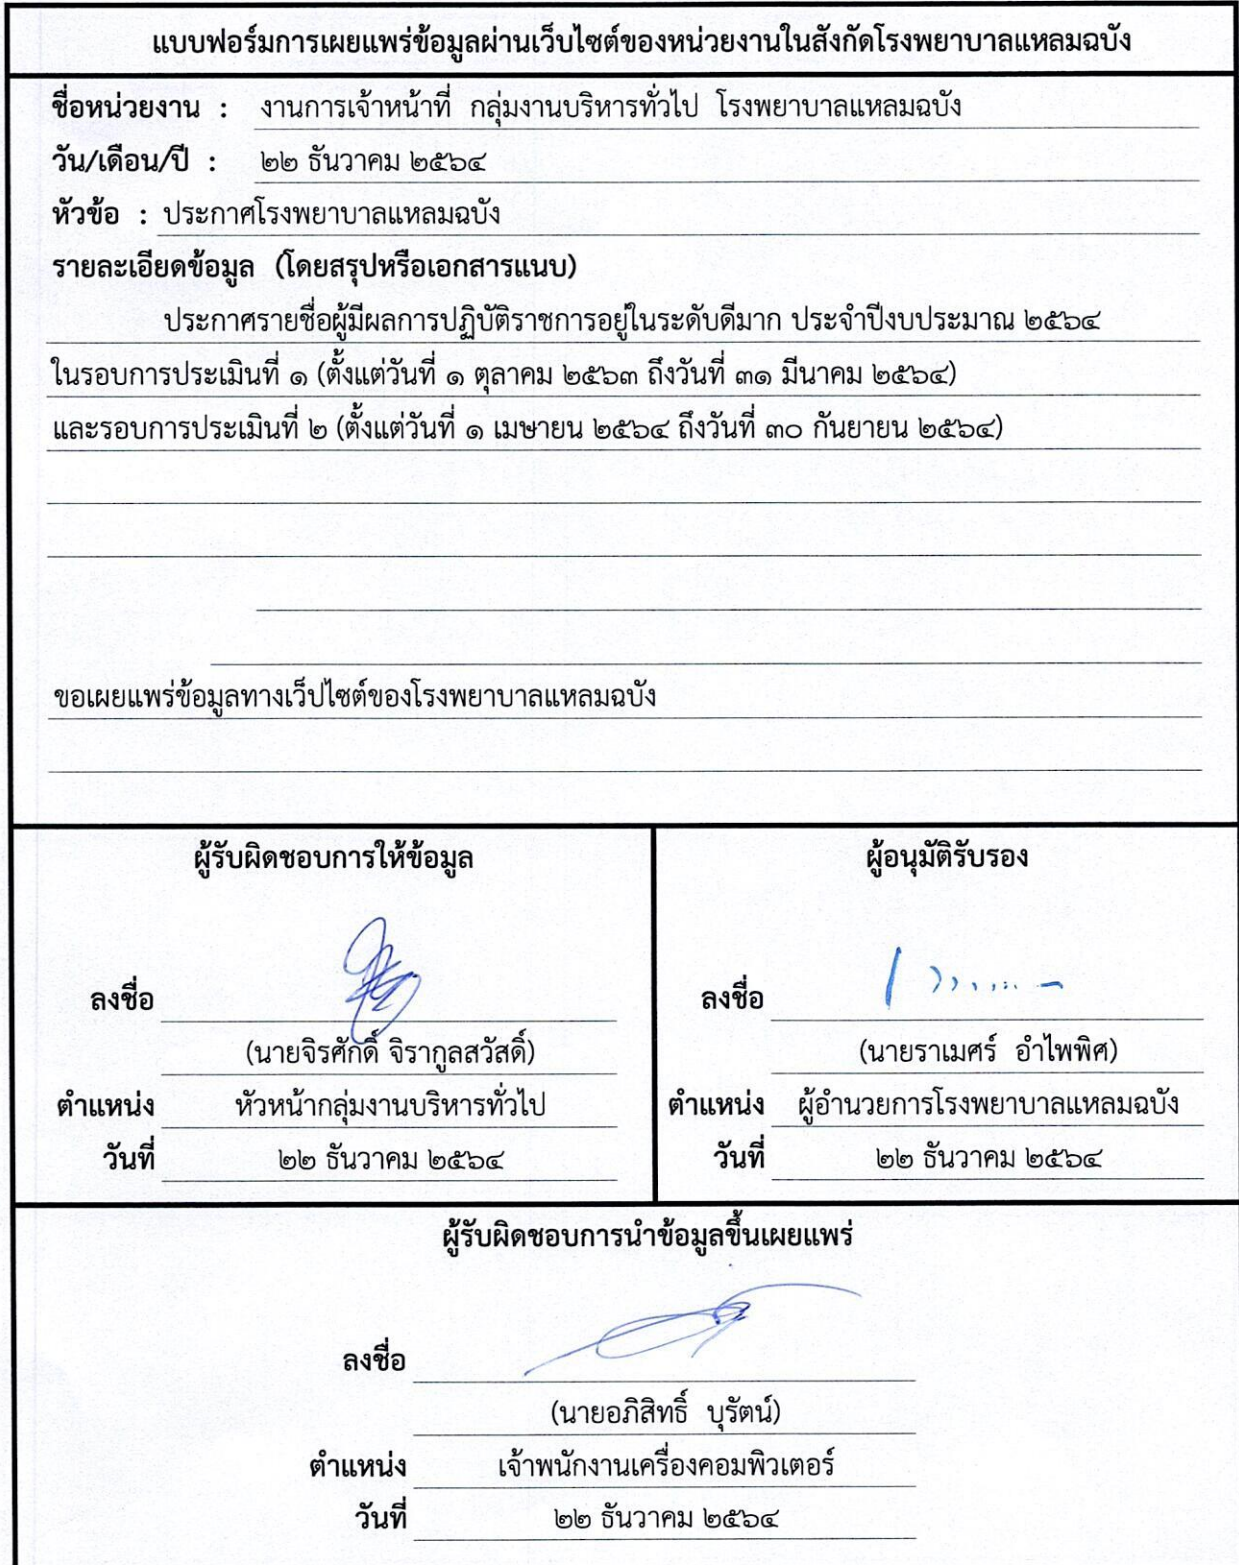 แบบฟอร์มการเผยแพร่ข้อมูลผ่านเว็บไซต์ของหน่วยงานในสังกัดโรงพยาบาลแหลมฉบัง
ชื่อหน่วยงาน : งานการเจ้าหน้าที่ กลุ่มงานบริหารทั่วไป โรงพยาบาลแหลมฉบัง
วัน/เดือน/ปี : ๒๒ ธันวาคม ๒๕๖๔
หัวข้อ : ประกาศโรงพยาบาลแหลมฉบัง
รายละเอียดข้อมูล (โดยสรุปหรือเอกสารแนบ)
ประกาศรายชื่อผู้มีผลการปฏิบัติราชการอยู่ในระดับดีมาก ประจำปีงบประมาณ ๒๕๖๔
ในรอบการประเมินที่ ๑ (ตั้งแต่วันที่ ๑ ตุลาคม ๒๕๖๓ ถึงวันที่ ๓๑ มีนาคม ๒๕๖๔)
และรอบการประเมินที่ ๒ (ตั้งแต่วันที่ ๑ เมษายน ๒๕๖๔ ถึงวันที่ ๓๐ กันยายน ๒๕๖๔)
ขอเผยแพร่ข้อมูลทางเว็ปไซต์ของโรงพยาบาลแหลมฉบัง
ผู้รับผิดชอบการให้ข้อมูล
ลงชื่อ
(นายจิรศักดิ์ จิรากูลสวัสดิ์)
ตำแหน่ง หัวหน้ากลุ่มงานบริหารทั่วไป
วันที่ ๒๒ ธันวาคม ๒๕๖๔
ผู้อนุมัติรับรอง
ลงชื่อ
(นายราเมศร์ อำไพพิศ)
ตำแหน่ง ผู้อำนวยการโรงพยาบาลแหลมฉบัง
วันที่ ๒๒ ธันวาคม ๒๕๖๔
ผู้รับผิดชอบการนำข้อมูลขึ้นเผยแพร่
ลงชื่อ
(นายอภิสิทธิ์ บุรัตน์)
ตำแหน่ง เจ้าพนักงานเครื่องคอมพิวเตอร์
วันที่ ๒๒ ธันวาคม ๒๕๖๔